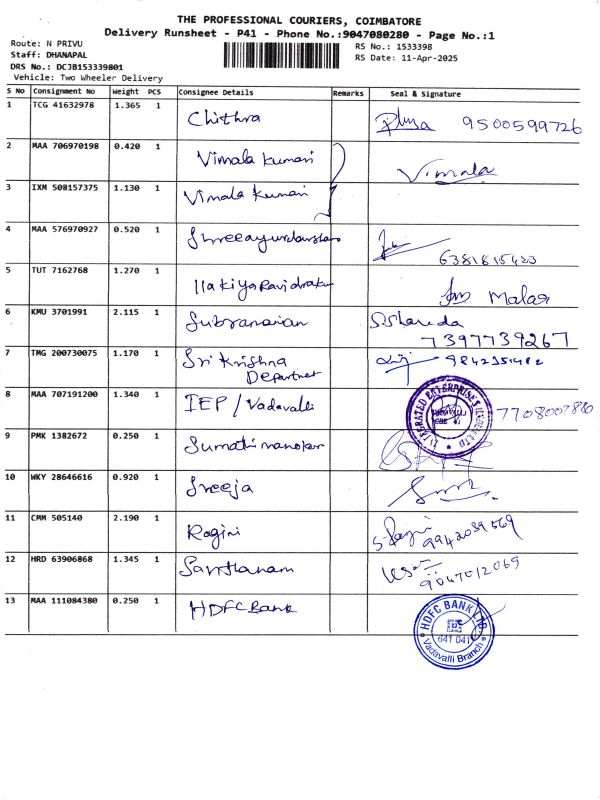 THE PROFESSIONAL COURIERS, COIMBATORE
Delivery Runsheet - P41 - Phone No.:9047080280 - Page No.:1
Route: N PRIVU
RS No.: 1533398
Staff: DHANAPAL
RS Date: 11-Apr-2025
DRS No.: DCJB153339801
Vehicle: Two Wheeler Delivery
S No Consignment No Weight PCS Consignee Details Remarks Seal & Signature
1 TCG 41632978 1.365 1 Chithra 9500599726
2 MAA 706970198 0.420 1 Vimala Kumari Vimala
3 IXM 508157375 1.130 1 Vimala Kumari
4 MAA 576970927 0.520 1 6381615423
5 TUT 7162768 1.270 1 Malar
6 KMU 3701991 2.115 1 Subramanian S.Sharada
7397739267
7 TMG 200730075 1.170 1 Sri Krishna
Department
8 MAA 707191200 1.340 1 IEP / Vadavalli INTEGRATED ENTERPRISES VADAVALLI 7708007880
9 PMK 1382672 0.250 1
10 WKY 28646616 0.920 1 Sreeja
11 CMM 505140 2.190 1 Ragini
9942039569
12 HRD 63906868 1.345 1 Santhanam
13 MAA 111084380 0.250 1 HDFC Bank
HDFC BANK LTD
641 041
Vadavalli Branch